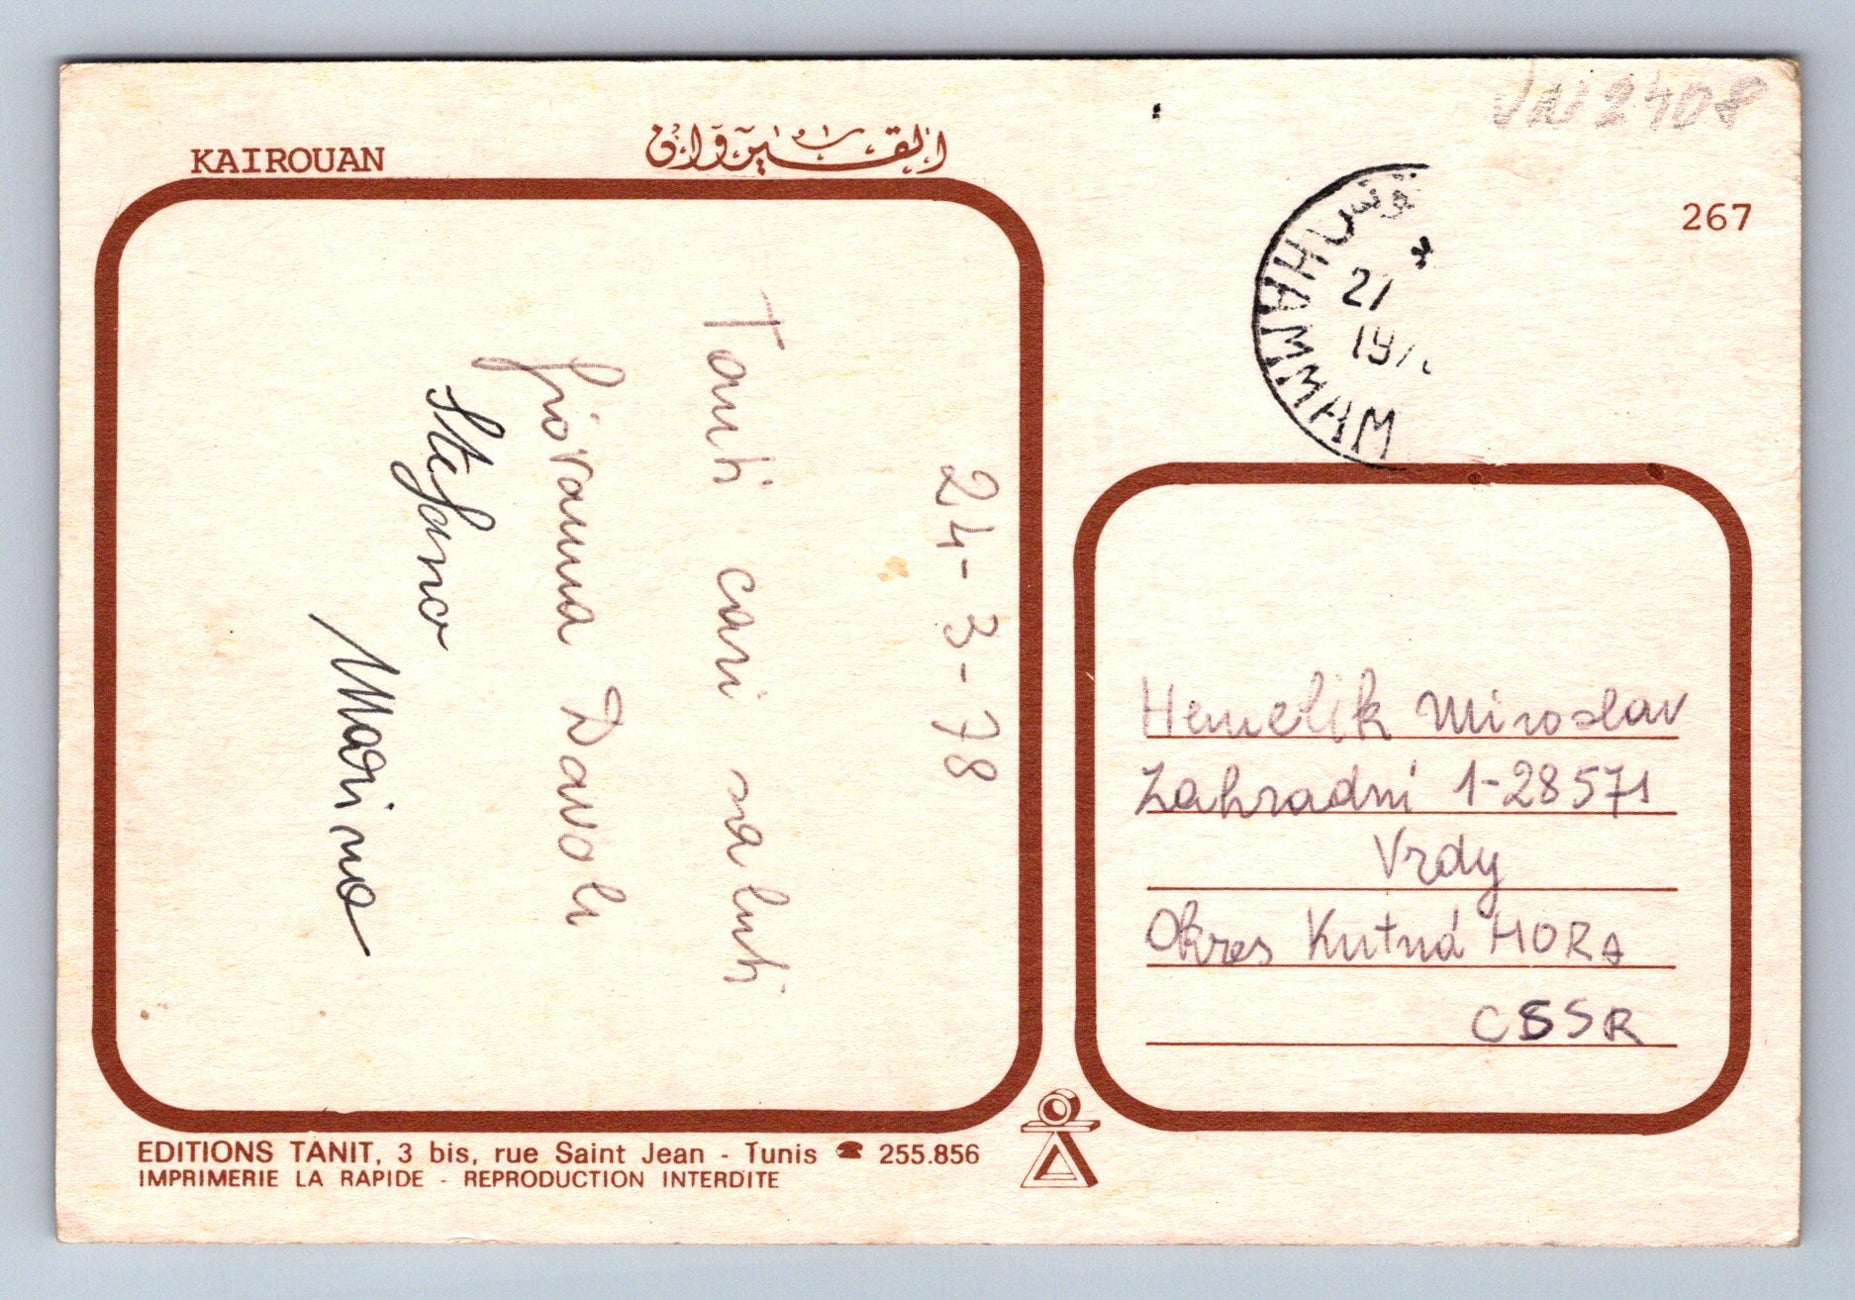 VN 2408
KAIROUAN
القيروان
267
تونس
HAMMAM
21
197
24-3-78
Tanti cari saluti
Giovanna Davoli
Stefano
Marino
Hemelik Miroslav
Zahradní 1-28571
Vrdy
Okres Kutná HORA
CSSR
EDITIONS TANIT, 3 bis, rue Saint Jean - Tunis ☎ 255.856
IMPRIMERIE LA RAPIDE - REPRODUCTION INTERDITE